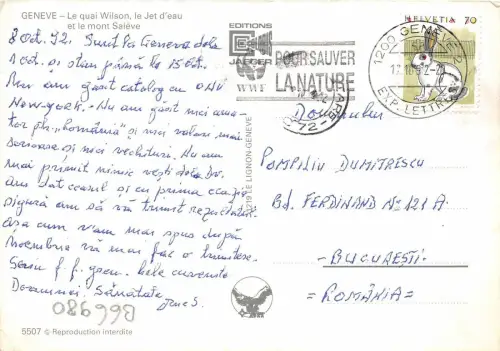 GENEVE – Le quai Wilson, le Jet d'eau
et le mont Salève
8 Oct. 92. Sunt la Geneva dela
1 Oct. și stau până la 15 Oct.
N-am găsit catalog cu ONU
New-york. Nu am găsit nici ama-
tor ptr. „România" și nici valori mai
serioase și nici vechituri. Nu am
mai primit nimic vești dela Dv.
am ceasul și cu prima ocazie
sigură am să vă trimit
așa cum v-am mai spus după
Noembrie vă mai fac o trimitere.
Scriu f. f. greu.
Doamnei Sănătate
B66980
5507 © Reproduction interdite
EDITIONS
JAEGER
WWF
POUR SAUVER
LA NATURE
HELVETIA 70
1200 GENEVE 2
EXP. LETTRES
72
1219 LE LIGNON-GENEVE
Domnului
POMPILIU DUMITRESCU
Bd. FERDINAND Nº 121 A
- BUCUREȘTI -
= ROMÂNIA =